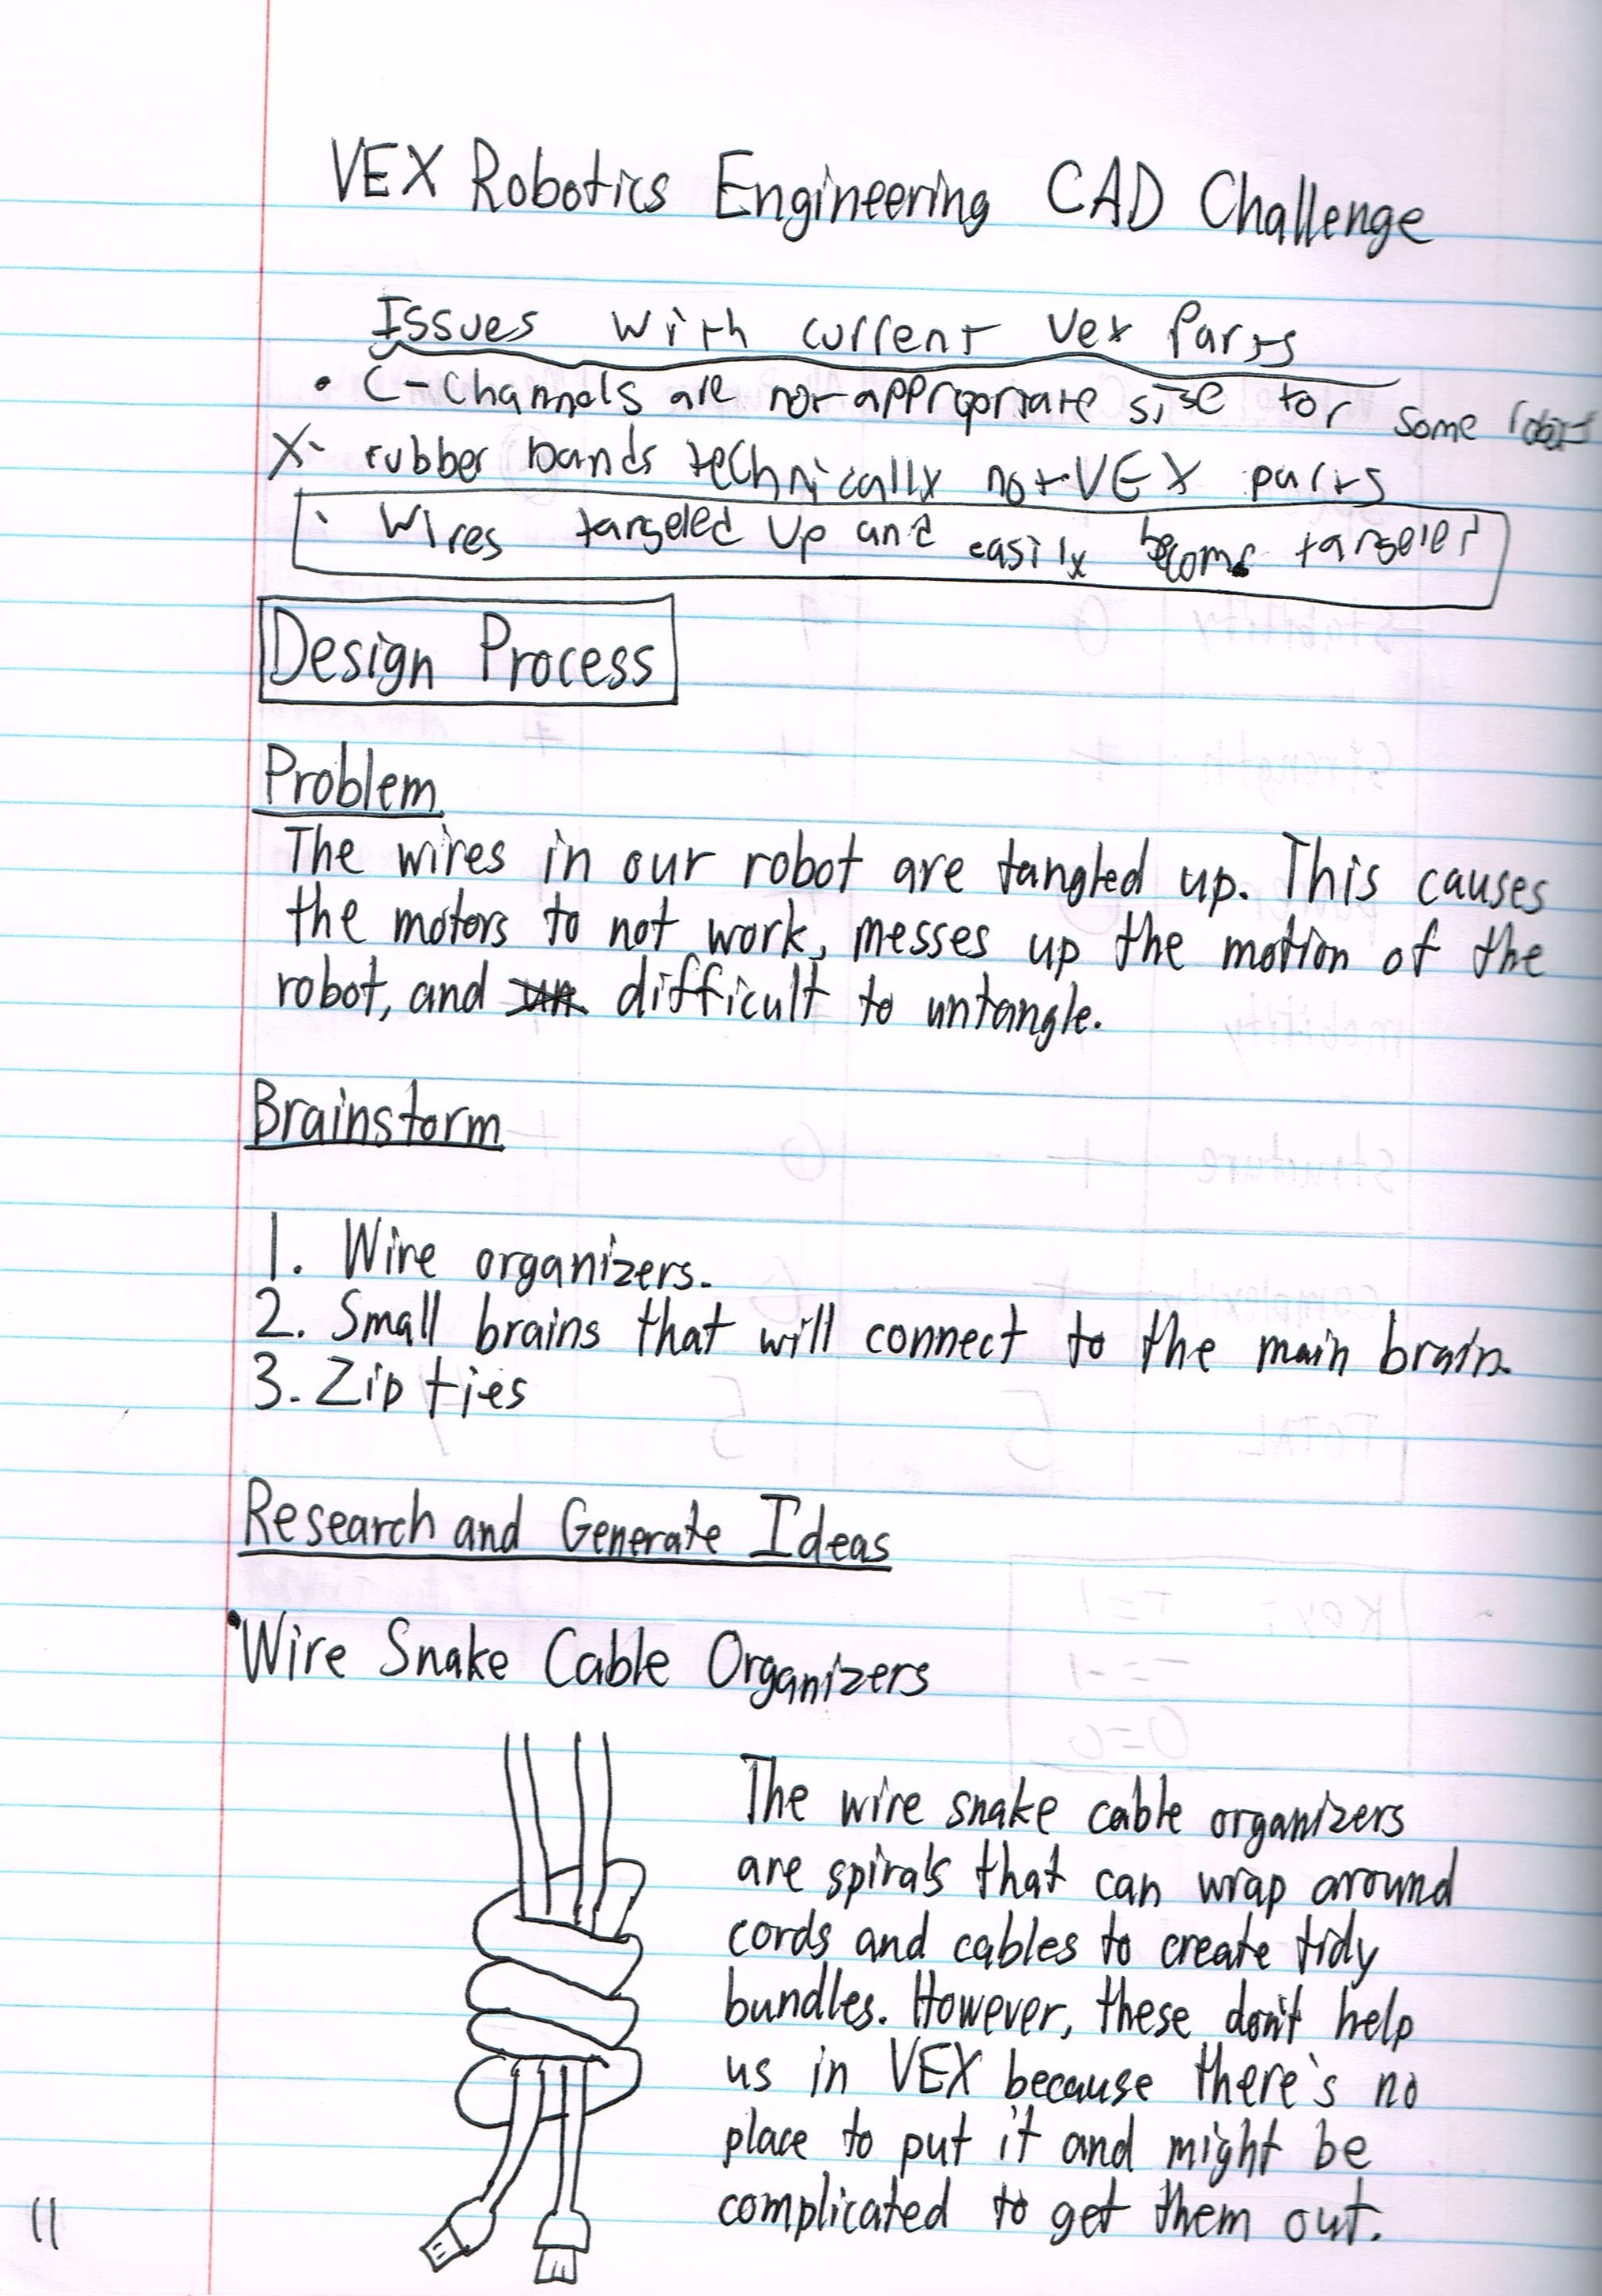 VEX Robotics Engineering CAD Challenge
Issues with current Vex Parts
• C-Channels are not appropriate size for some
X• rubber bands technically not VEX parts
• Wires tangeled up and easily become tangeled
Design Process
Problem
The wires in our robot are tangled up. This causes
the motors to not work, messes up the motion of the
robot, and difficult to untangle.
Brainstorm
1. Wire organizers.
2. Small brains that will connect to the main brain.
3. Zip ties
Research and Generate Ideas
• Wire Snake Cable Organizers
The wire snake cable organizers
are spirals that can wrap around
cords and cables to create tidy
bundles. However, these don't help
us in VEX because there's no
place to put it and might be
complicated to get them out.
11